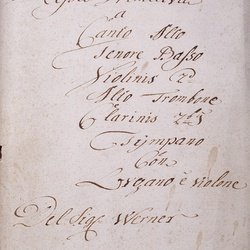 a
Canto Alto
Tenore Basso
Violinis 2º
Alto Trombone
Clarinis 2bus
Tympano
Con
Organo è violone
Del Sigre Werner